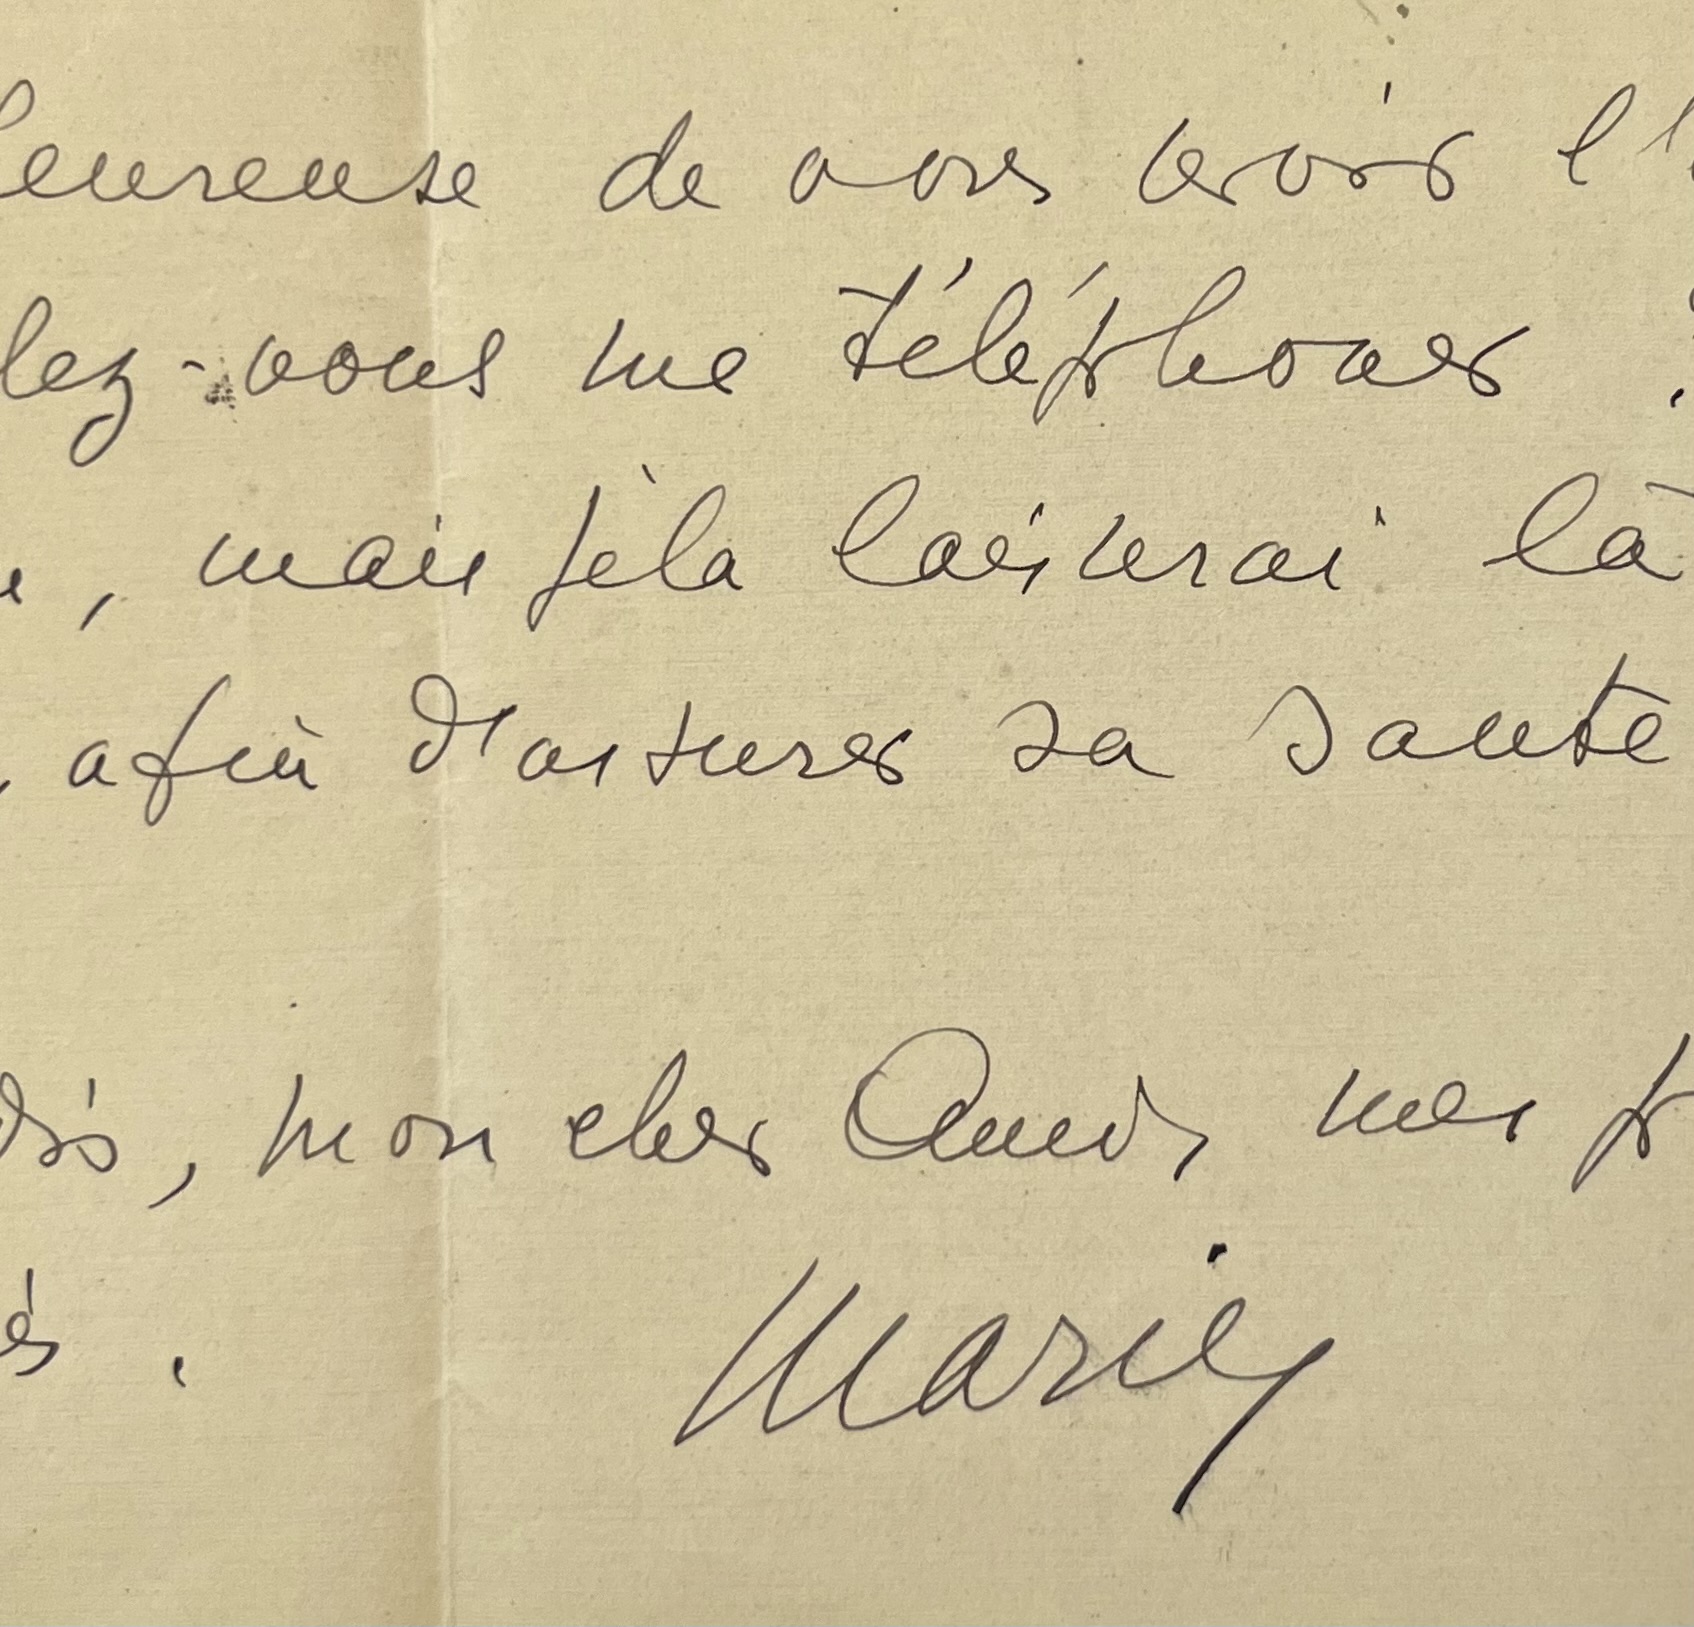 heureuse de vous voir l'
lez-vous me téléphoner ?
, mais je la laisserai là
, afin d'assurer sa santé
, mon cher Ami, mes
és.
Marie